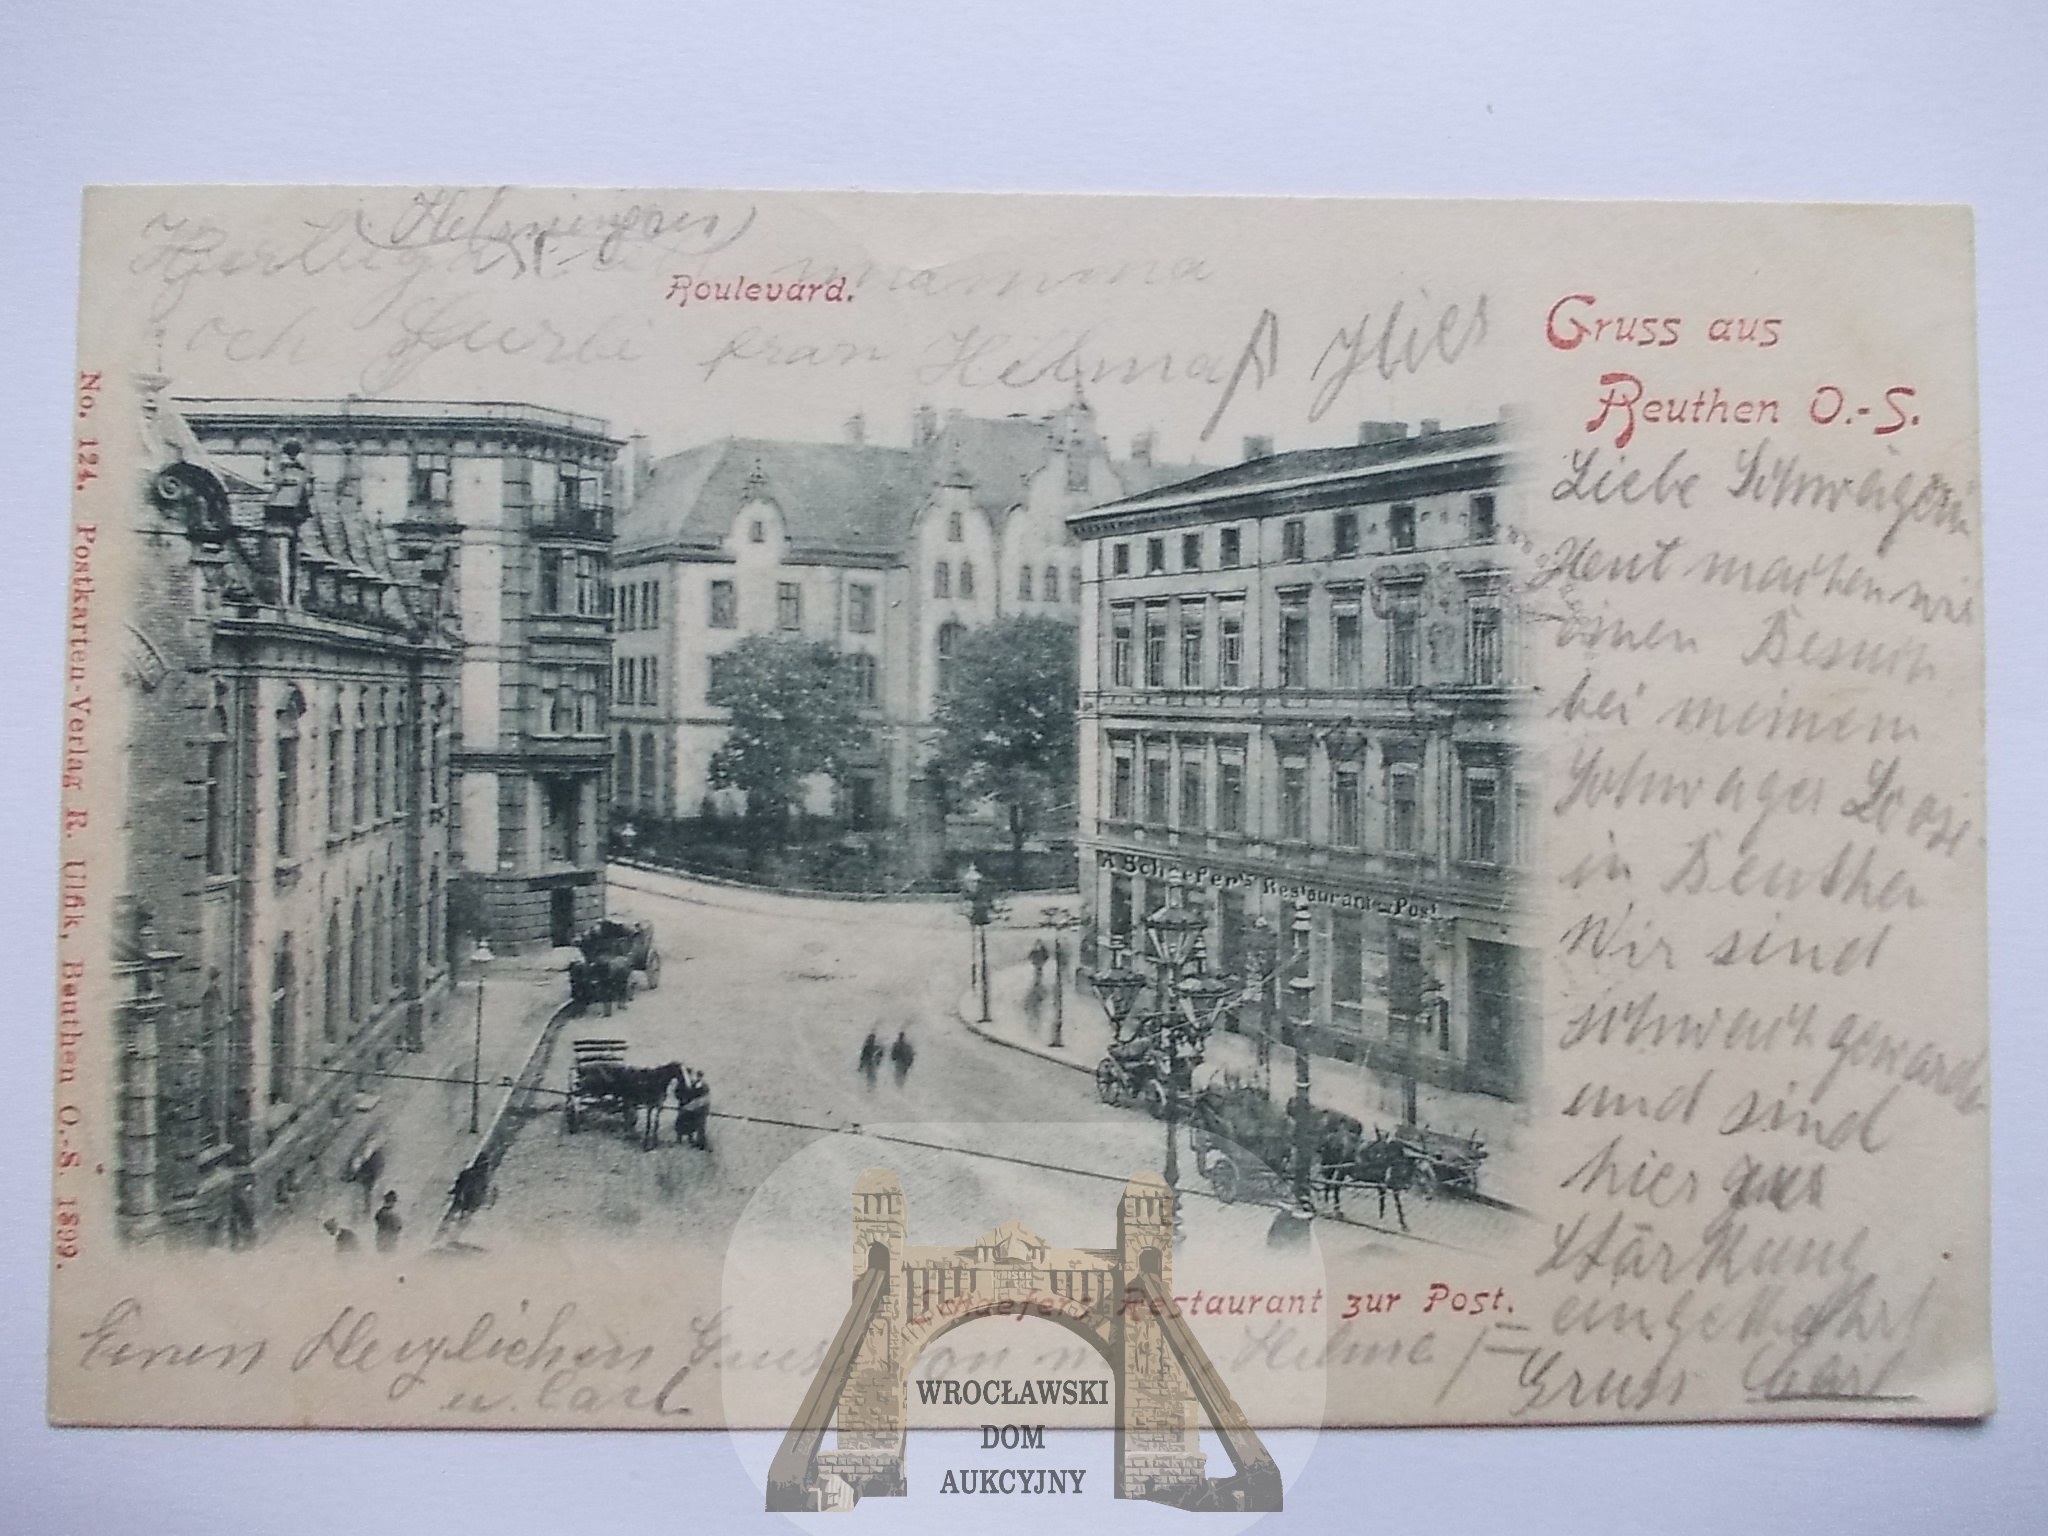 (Helsingen)
mamma
och från Helma
Boulevard.
Gruss aus
Beuthen O.-S.
Liebe Schwägerin
Heut machen wir
einen Besuch
bei meinem
Schwager
in Beuthen
Wir sind
schwach geworden
und sind
hier zur
Stärkung
eingekehrt
Gruss Carl
A. Schaefer's Restaurant zur Post
Schaefers Restaurant zur Post.
Einen Herzlichen Gruss von Helma
u. Carl
No. 124. Postkarten-Verlag R. Ulfik, Beuthen O.-S. 1899.
WROCŁAWSKI
DOM
AUKCYJNY